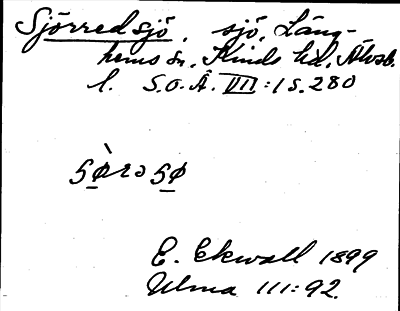 Sjörredsjö, sjö, Läng-
hems sn, Kinds hd, Älvsb.
l. S.O.Ä. VII:1 s. 280
E. Ekwall 1899
Ulma 111:92.